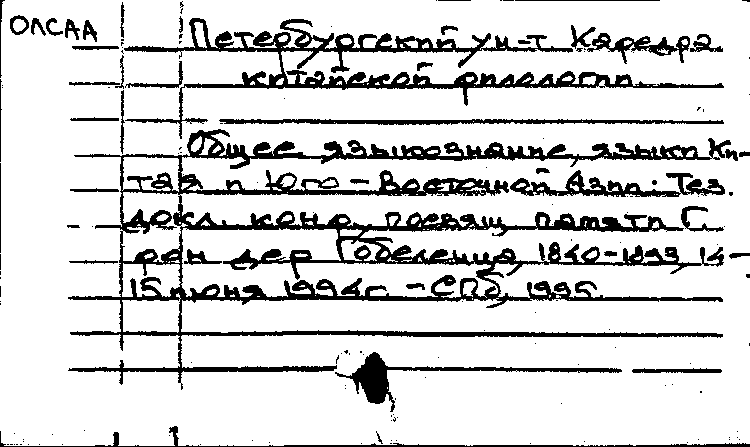 ОЛСАА
Петербургский ун-т Кафедра
китайской филологии.
Общее языкознание, языки Ки-
тая и Юго-Восточной Азии: Тез.
докл. конф., посвящ. памяти Г.
фон дер Габеленца, 1840-1893, 14-
15 июня 1994г. - СПб, 1995.